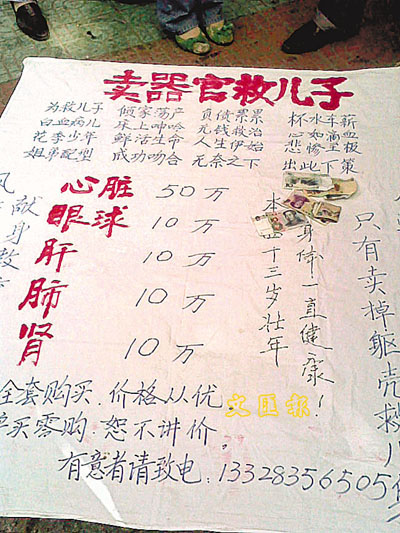 卖器官救儿子
为救儿子 倾家荡产 负债累累 杯水车薪
白血病儿 床上呻吟 无钱救治 心如滴血
花季少年 鲜活生命 人生伊始
姐弟配型 成功吻合 无奈之下 出此下策
心脏 50万
眼球 10万
肝 10万
肺 10万
肾 10万
本 十三岁壮年
身体一直健康！
只有卖掉躯壳救
献身救
全套购买.价格从优.
买零购.恕不讲价.
有意者请致电:13328356505
文匯报